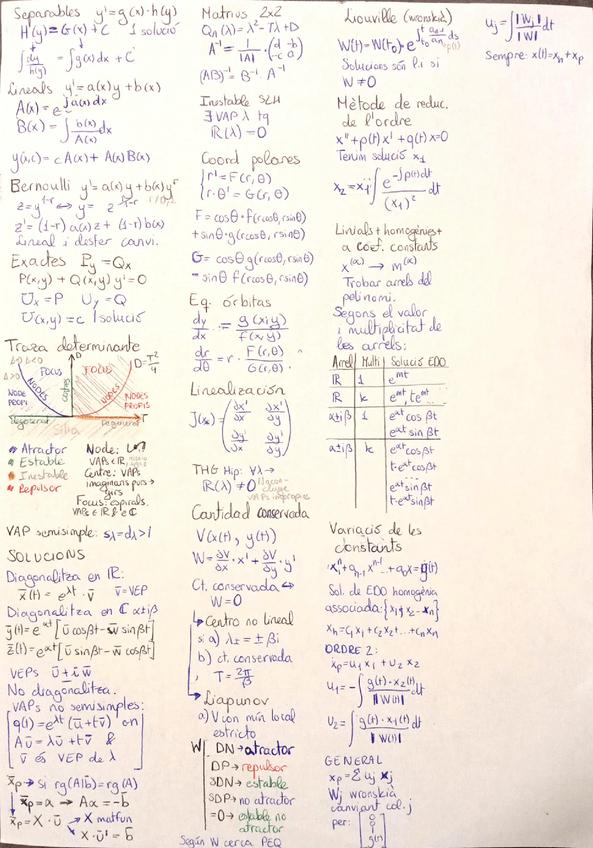 Separables y'=g(x)·h(y)
H(y)=G(x)+C 1 solució
∫dy/h(y) = ∫g(x)dx + C
Lineals y'=a(x)y+b(x)
A(x)=e^∫a(x)dx
B(x)=∫b(x)/A(x) dx
y(x,c)=cA(x)+A(x)B(x)
Bernoulli y'=a(x)y+b(x)y^r
z=y^1-r ↔ y=z^1/1-r
z'=(1-r)a(x)z+(1-r)b(x)
Lineal i desfer canvi.
Exactes Py=Qx
P(x,y)+Q(x,y)y'=0
Ux=P Uy=Q
U(x,y)=c 1 solució
Traza determinante
Δ>0 Δ<0 D D=T²/4
FOCUS FOCUS
NODES NODES
NODE PROPI NODES PROPIS
T
Silla
* Atractor
* Estable
* Inestable
* Repulsor
Node:
VAPs∈ℝ
Centre: VAPs
imaginaris purs→
girs
Focus: espirals.
VAP semisimple: sλ=dλ>1
SOLUCIONS
Diagonalitza en ℝ:
x̄(t)=e^λt·v̄ v̄=VEP
Diagonalitza en ℂ α±iβ
ȳ(t)=e^αt[ūcosβt-w̄sinβt]
z̄(t)=e^αt[ūsinβt-w̄cosβt]
VEPs ū±iw̄
No diagonalitza.
VAPs no semisimples:
φ(t)=e^λt(ū+tv̄) on
Aū=λū+tv̄ &
v̄ és VEP de λ
x̄p→si rg(A|b̄)=rg(A)
x̄p=a→Aa=-b
x̄p=X·ū → X matfun
X·ū'=b̄
Matrius 2x2
QA(λ)=λ²-Tλ+D
A^-1=1/|A|·(d -b
-c a)
(AB)^-1=B^-1·A^-1
Inestable SLH
∃VAP λ tq
ℝ(λ)=0
Coord polares
{r'=F(r,θ)
{r·θ'=G(r,θ)
F=cosθ·f(rcosθ,rsinθ)
+sinθ·g(rcosθ,rsinθ)
G=cosθg(rcosθ,rsinθ)
-sinθ f(rcosθ,rsinθ)
Eq. órbitas
dy/dx = g(x,y)/f(x,y)
dr/dθ = r·F(r,θ)/G(r,θ)
Linealización
J(x)=(∂x'/∂x ∂x'/∂y
∂y'/∂x ∂y'/∂y)
THG Hip: ∀λ→
ℝ(λ)≠0
Cantidad conservada
V(x(t), y(t))
W=∂V/∂x·x'+∂V/∂y·y'
Ct. conservada↔
W=0
Centro no lineal
si a) λ±=±βi
b) ct. conservada
T=2π/β
Liapunov
a) V con mín local
estricto
W DN→atractor
DP→repulsor
SDN→estable
SDP→no atractor
=0→estable no
atractor
Según W cerca PEQ
Liouville (wronskià)
W(t)=W(t0)·e^∫t0 t an-1/an ds
Solucions són l.i si
W≠0
Mètode de reduc.
de l'ordre
x''+p(t)x'+q(t)x=0
Tenim solució x1
x2=x1·∫e^-∫p(t)dt/(x1)² dt
Linials+homogènies+
a coef. constants
x^(α)→m^(α)
Trobar arrels del
polinomi.
Segons el valor
i multiplicitat de
les arrels:
Arrel Multi Solució EDO
ℝ 1 e^mt
ℝ k e^mt, te^mt
α±iβ 1 e^αt cosβt
e^αt sinβt
α±iβ k e^αt cosβt
t·e^αt cosβt
e^αt sinβt
t·e^αt sinβt
Variació de les
constants
x^n+an-1x^n-1+...+a0x=g(t)
Sol. de EDO homogènia
associada:{x1,x2...xn}
xh=c1x1+c2x2+...+cnxn
ORDRE 2:
xp=u1x1+u2x2
u1=-∫g(t)·x2(t)/||W(t)|| dt
u2=∫g(t)·x1(t)/||W(t)|| dt
GENERAL
xp=Σujxj
Wj wronskià
canviant col.j
per: [0
0
g(t)]
uj=∫||Wj||/||W|| dt
Sempre: x(t)=xh+xp